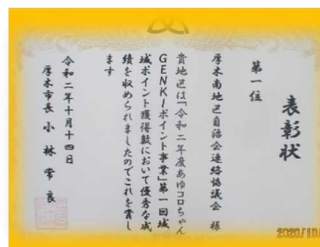 表彰状
第一位
厚木南地区自治会連絡協議会 様
貴地区は「令和二年度あゆコロちゃん
GENKIポイント事業」第一回地
域ポイント獲得数において優秀な成
績を収められましたのでこれを賞し
ます
令和二年十月十四日
厚木市長 小林常良
2020/10